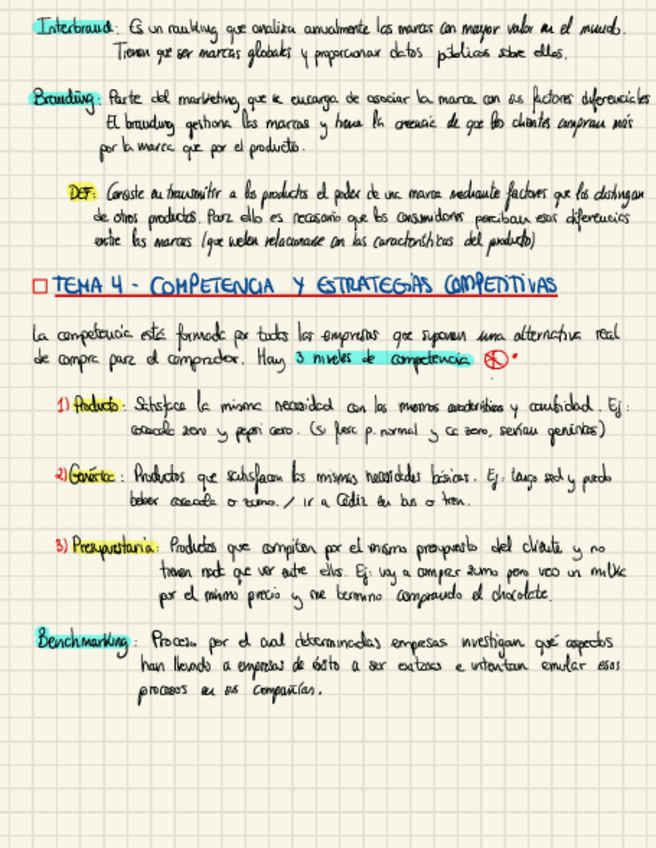 Interbrand: Es un ranking que analiza anualmente las marcas con mayor valor en el mundo.
Tienen que ser marcas globales y proporcionar datos públicos sobre ellos.
Branding: Parte del marketing que se encarga de asociar la marca con sus factores diferenciales
El branding gestiona las marcas y tiene la creencia de que los clientes compran más
por la marca que por el producto.
DEF: Consiste en transmitir a los productos el poder de una marca mediante factores que los distingan
de otros productos. Para ello es necesario que los consumidores perciban esas diferencias
entre las marcas (que suelen relacionarse con las características del producto)
TEMA 4 - COMPETENCIA Y ESTRATEGIAS COMPETITIVAS
La competencia está formada por todas las empresas que suponen una alternativa real
de compra para el comprador. Hay 3 niveles de competencia
1) Producto: Satisface la misma necesidad con las mismas características y cantidad. Ej:
cocacola zero y pepsi cero. (si fuese p. normal y cc zero, serían genéricos)
2) Genérica: Productos que satisfacen las mismas necesidades básicas. Ej: tengo sed y puedo
beber cocacola o zumo. / ir a Cádiz en bus o tren.
3) Presupuestaria: Productos que compiten por el mismo presupuesto del cliente y no
tienen nada que ver entre ellos. Ej: voy a comprar zumo pero veo un milka
por el mismo precio y me termino comprando el chocolate.
Benchmarking: Proceso por el cual determinadas empresas investigan qué aspectos
han llevado a empresas de éxito a ser exitosas e intentan emular esos
procesos en sus compañías.